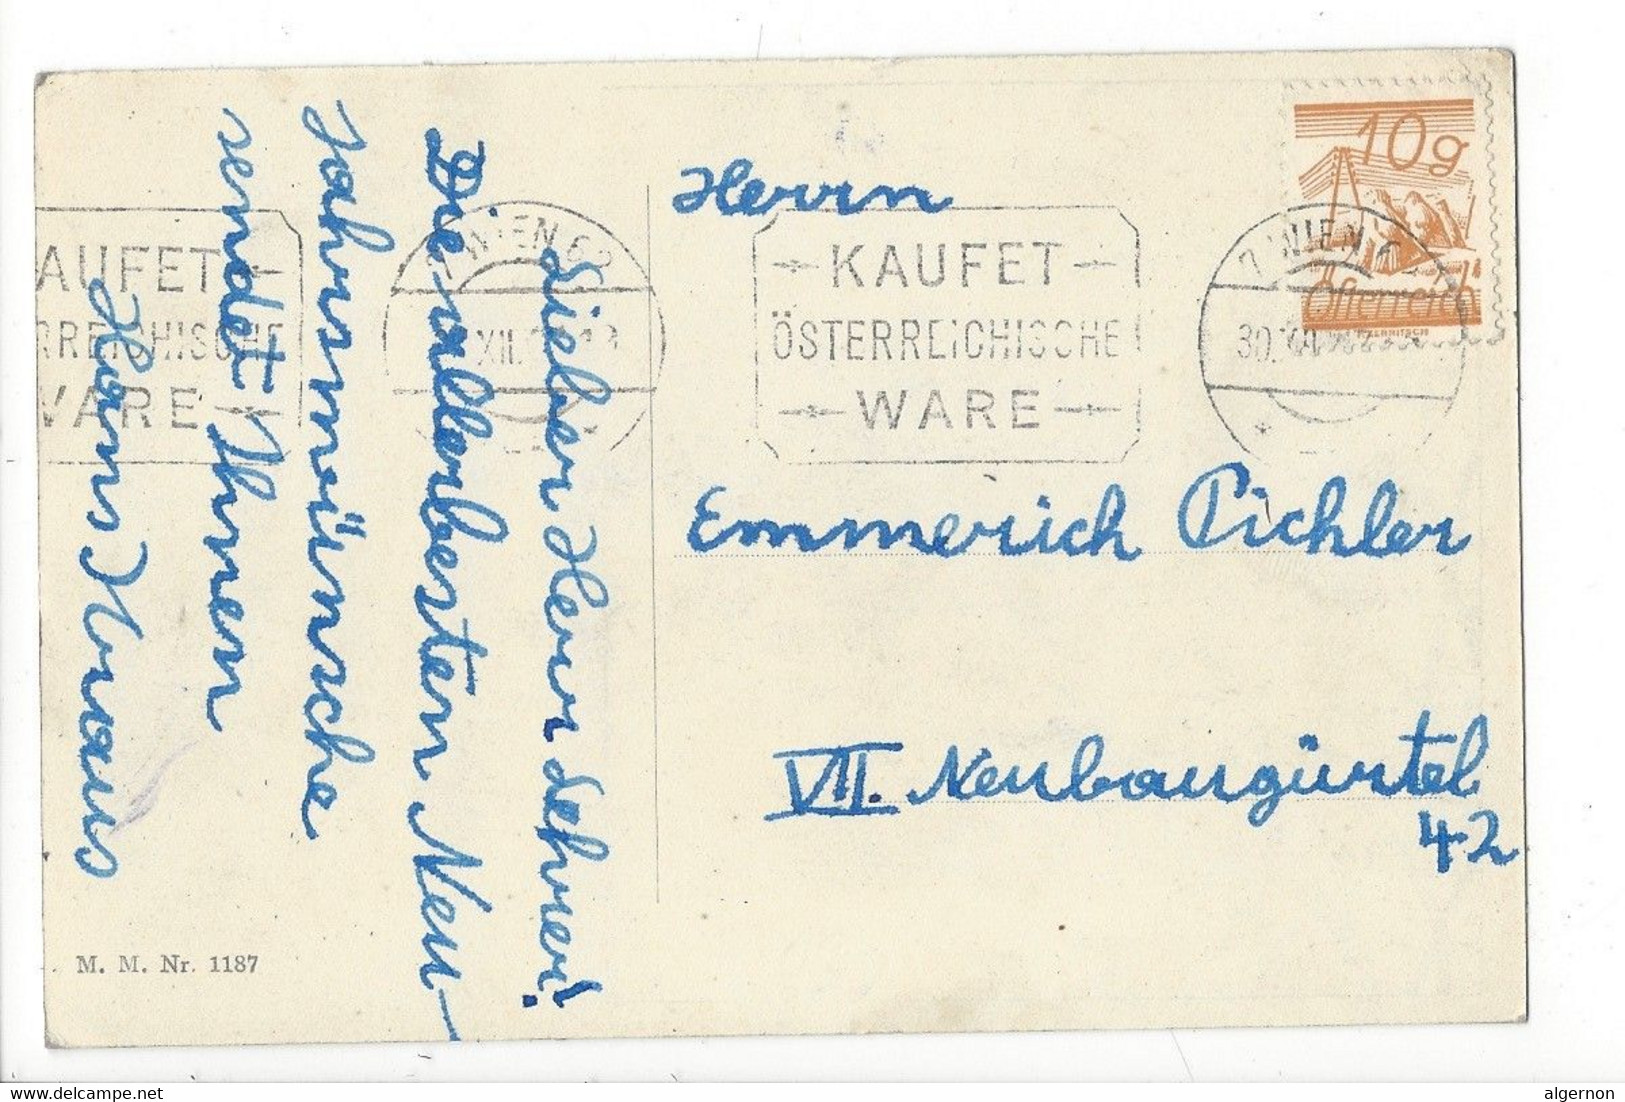 Lieber Herr Lehrer!
Die allerbesten Neu-
jahrswünsche
sendet Ihnen
Hans Kraus
M. M. Nr. 1187
AUFET
RREICHISCHE
WARE
WIEN 62
XII.
KAUFET
ÖSTERREICHISCHE
WARE
7 WIEN 6
30.
10g
Österreich
Herrn
Emmerich Pichler
VII. Neubaugürtel
42
delcampe.net
algernon